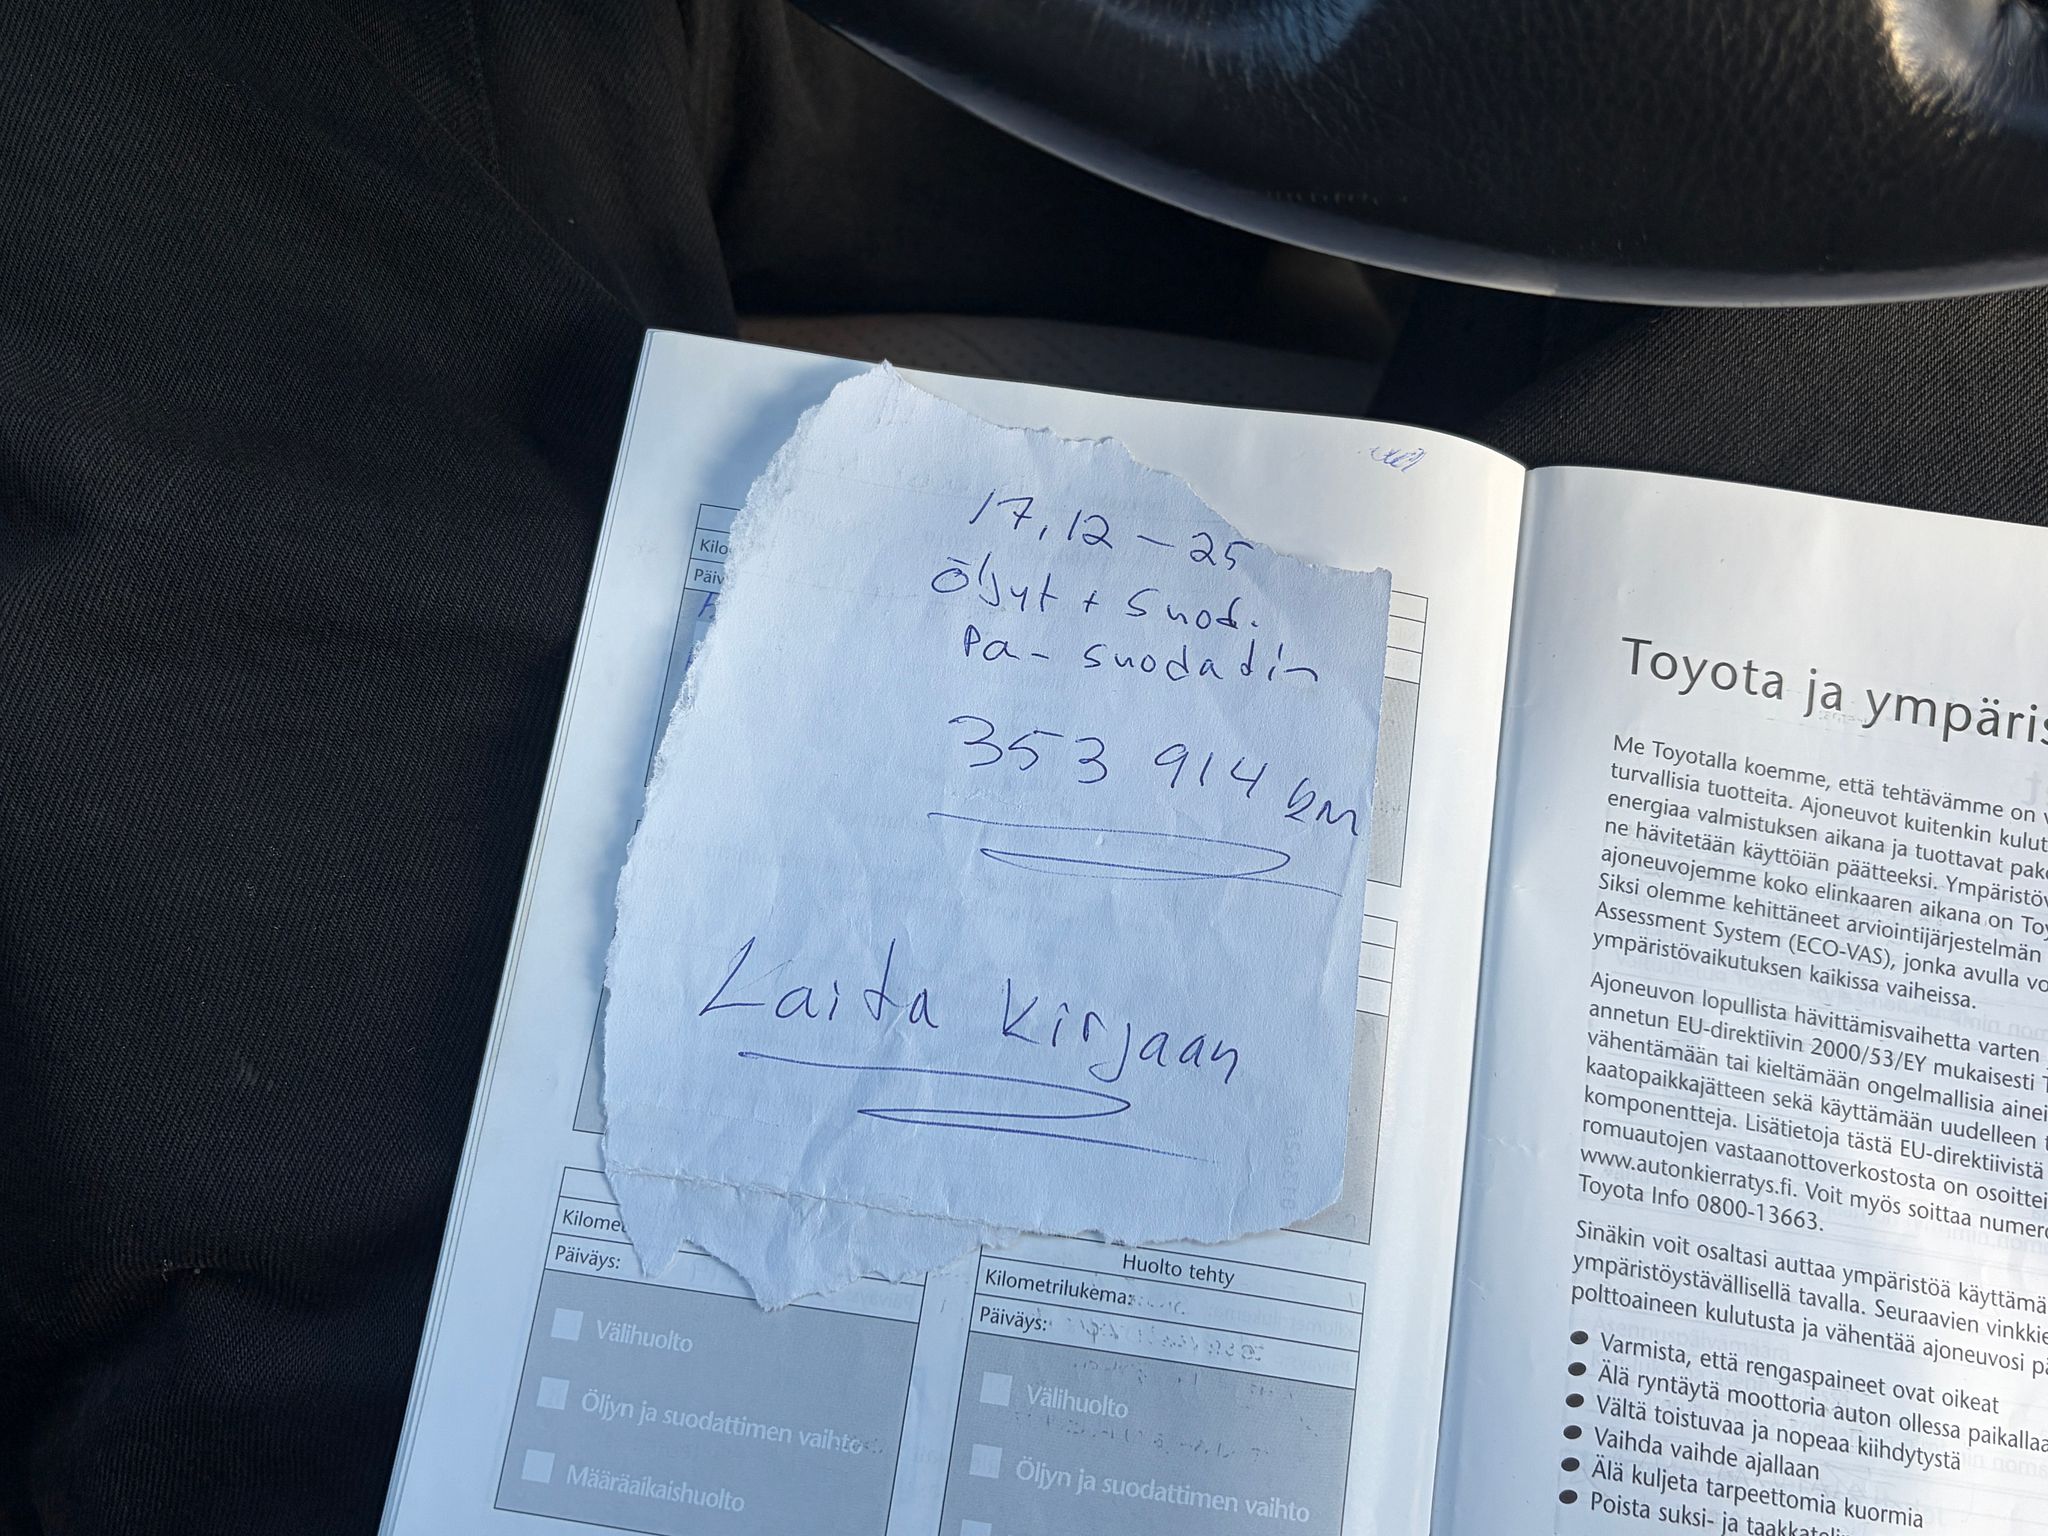 17.12-25
Öljyt + suod.
Pa- suodatin
353 914 km
Laita kirjaan
Kilo
Päiv
Kilomet
Päiväys:
Välihuolto
Öljyn ja suodattimen vaihto
Määräaikaishuolto
Huolto tehty
Kilometrilukema:
Päiväys:
Välihuolto
Öljyn ja suodattimen vaihto
Toyota ja ympäris
Me Toyotalla koemme, että tehtävämme on v
turvallisia tuotteita. Ajoneuvot kuitenkin kulut
energiaa valmistuksen aikana ja tuottavat pak
ne hävitetään käyttöiän päätteeksi. Ympäristöv
ajoneuvojemme koko elinkaaren aikana on Toy
Siksi olemme kehittäneet arviointijärjestelmän
Assessment System (ECO-VAS), jonka avulla vo
ympäristövaikutuksen kaikissa vaiheissa.
Ajoneuvon lopullista hävittämisvaihetta varten
annetun EU-direktiivin 2000/53/EY mukaisesti T
vähentämään tai kieltämään ongelmallisia ainei
kaatopaikkajätteen sekä käyttämään uudelleen t
komponentteja. Lisätietoja tästä EU-direktiivistä
romuautojen vastaanottoverkostosta on osoittei
www.autonkierratys.fi. Voit myös soittaa numero
Toyota Info 0800-13663.
Sinäkin voit osaltasi auttaa ympäristöä käyttämä
ympäristöystävällisellä tavalla. Seuraavien vinkkie
polttoaineen kulutusta ja vähentää ajoneuvosi pä
● Varmista, että rengaspaineet ovat oikeat
● Älä ryntäytä moottoria auton ollessa paikallaa
● Vältä toistuvaa ja nopeaa kiihdytystä
● Vaihda vaihde ajallaan
● Älä kuljeta tarpeettomia kuormia
● Poista suksi- ja taakkatelin